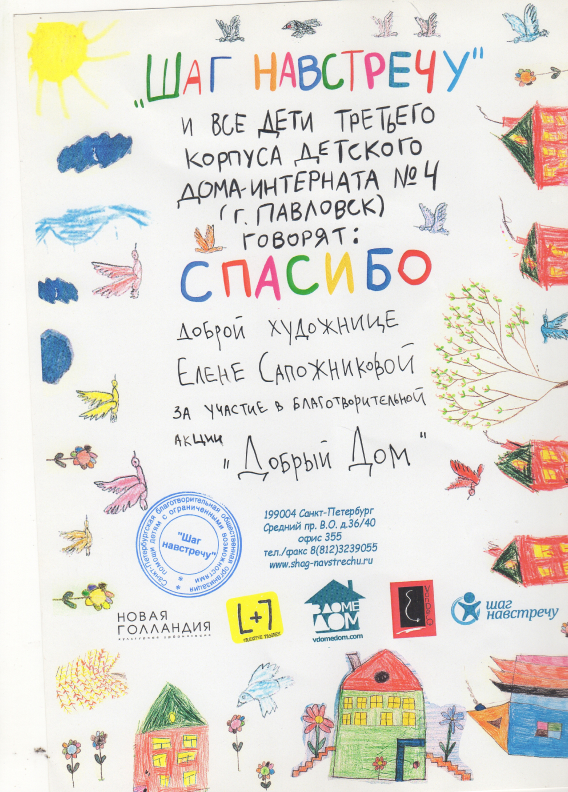 "ШАГ НАВСТРЕЧУ"
И ВСЕ ДЕТИ ТРЕТЬЕГО
КОРПУСА ДЕТСКОГО
ДОМА-ИНТЕРНАТА №4
(Г. ПАВЛОВСК)
ГОВОРЯТ:
СПАСИБО
ДОБРОЙ ХУДОЖНИЦЕ
ЕЛЕНЕ САПОЖНИКОВОЙ
ЗА УЧАСТИЕ В БЛАГОТВОРИТЕЛЬНОЙ
АКЦИИ
"ДОБРЫЙ ДОМ"
Санкт-Петербургская благотворительная общественная организация
помощи детям с ограниченными возможностями
"Шаг
навстречу"
199004 Санкт-Петербург
Средний пр. В.О. д.36/40
офис 355
тел./факс 8(812)3239055
www.shag-navstrechu.ru
НОВАЯ
ГОЛЛАНДИЯ
L+7
В ДОМЕ
ДОМ
vdomedom.com
шаг
навстречу